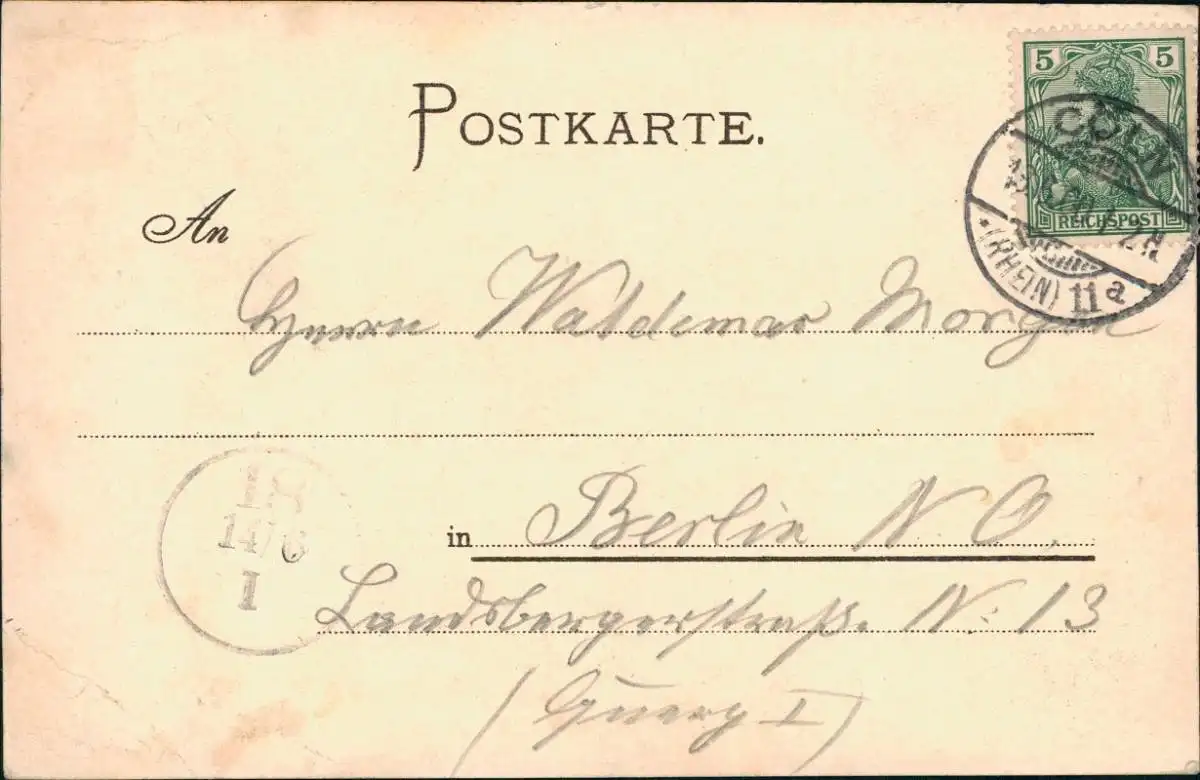 POSTKARTE.
5 5
REICHSPOST
CÖLN
(RHEIN) 11a
An
Herrn Waldemar Morgen
in Berlin N.O.
14/6
I
Landsbergerstraße N: 13
(Querg I)